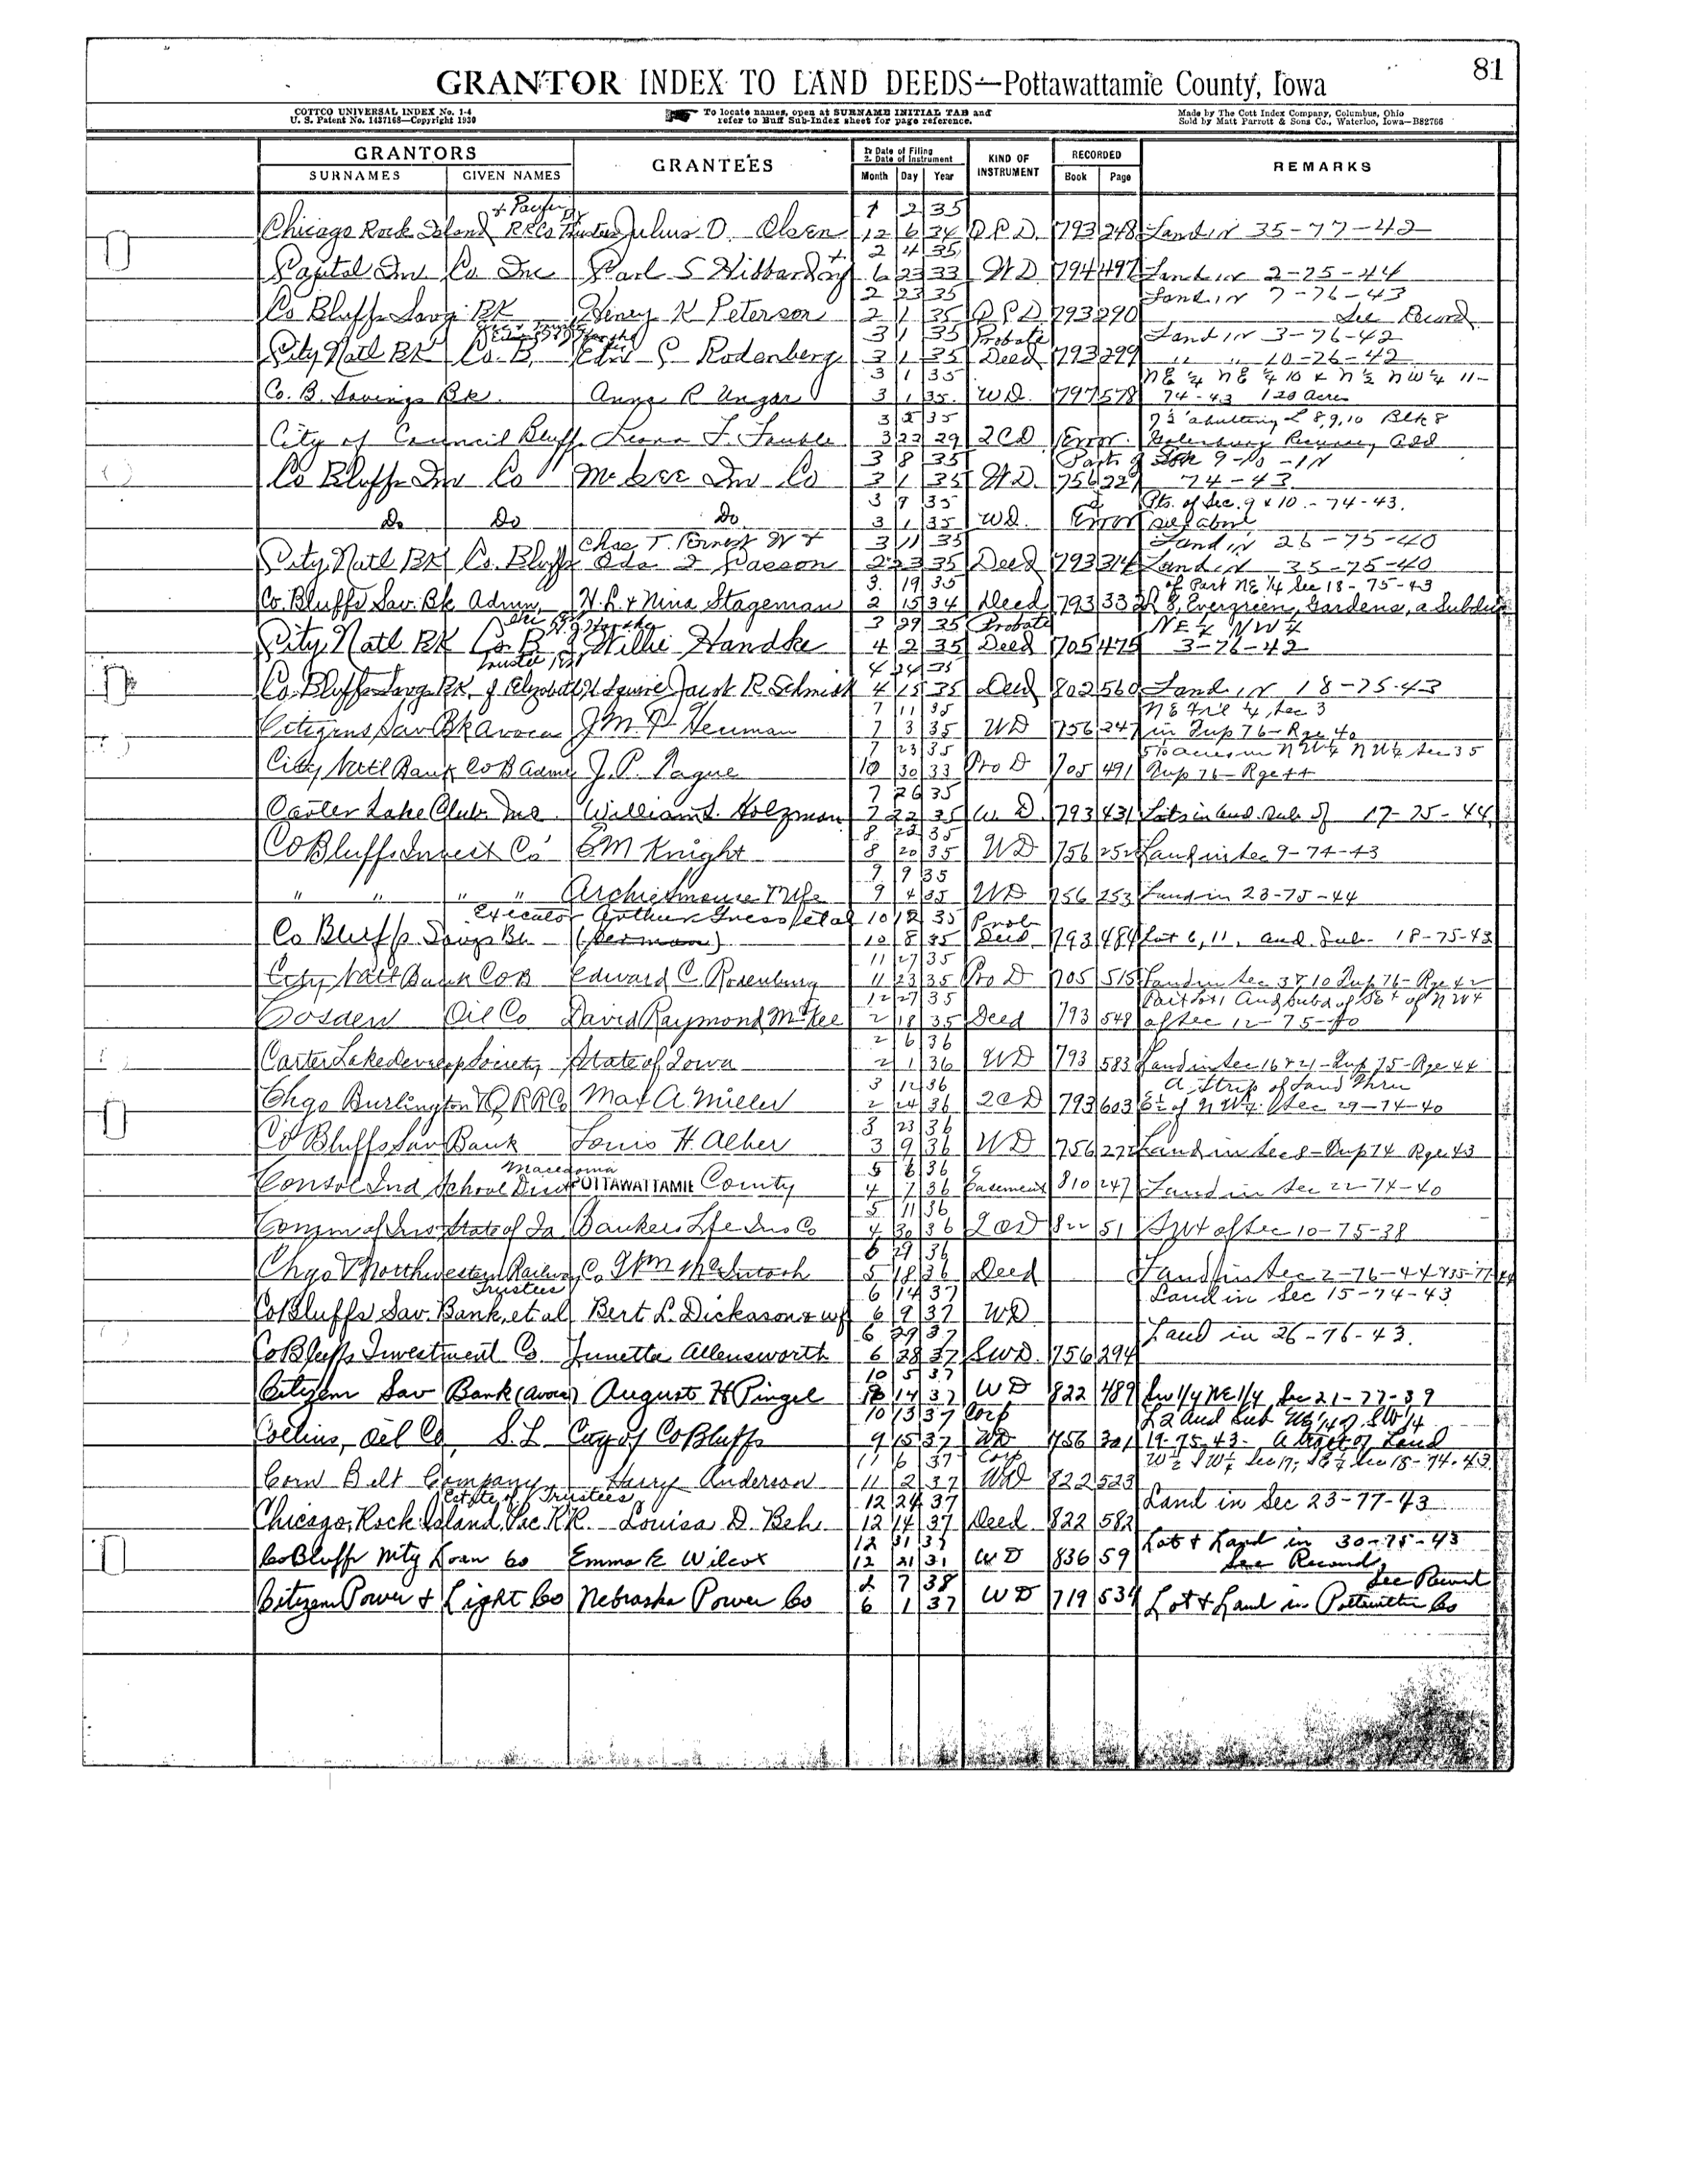 81
GRANTOR INDEX TO LAND DEEDS—Pottawattamie County, Iowa
COTTCO UNIVERSAL INDEX No. 1-4
U. S. Patent No. 1437168—Copyright 1930
To locate names, open at SURNAME INITIAL TAB and
refer to Buff Sub-Index sheet for page reference.
Made by The Cott Index Company, Columbus, Ohio
Sold by Matt Parrott & Sons Co., Waterloo, Iowa—B82766
GRANTORS GRANTEES 1: Date of Filing 2. Date of Instrument KIND OF INSTRUMENT RECORDED REMARKS
SURNAMES GIVEN NAMES Month Day Year Book Page
& Pacific Ry 1 2 35
Chicago Rock Island R.R.Co Trustees Julius D. Olsen 12 6 34 Q.C.D. 793 248 Land in 35-77-42
2 4 35
Capital Inv Co Inc Earl S Hibbard 6 23 33 W D 794 497 Land in 2-75-44
2 23 35 Land in 7-76-43
Co Bluffs Savg BK Henry K Peterson 2 1 35 Q C D 793 290 See Record
3 1 35 Probate Land in 3-76-42
City Natl BK Co. B. S. Rodenberg 3 1 35 Deed 793 299 " " 10-26-42
3 1 35 NE ¼ NE ¼ 10 & N ½ NW ¼ 11-
Co. B. Savings Bk. Anna R Ungar 3 1 35 WD. 797 578 74-43 120 acres
3 5 35 abutting L 8,9,10 Blk 8
City of Council Bluffs Leona F. 3 22 29 2CD Error. Add
3 8 35 Parts of 9-10 - IN
Co Bluffs Inv Co McGee Inv Co 3 1 35 W D 756 227 74-43
3 9 35 Pts. of Sec. 9 & 10. - 74-43.
Do Do Do 3 1 35 WD. Error see above
Chas T. W & 3 11 35 Land in 26-75-40
City Natl BK Co. Bluffs Ada I Passon 2 23 35 Deed 793 314 Land in 35-75-40
3 19 35 of Part NE ¼ Sec 18-75-43
Co. Bluffs Sav. Bk Admn, H.L. & Nina Stageman 2 15 34 Deed 793 333 8, Evergreen, Gardens, a Subdiv
3 29 35 Probate NE ¼ NW ¼
City Natl BK Co. B Willie Handke 4 2 35 Deed 705 475 3-76-42
Trustee 4 24 35
Co. Bluffs Savg BK. of Elizabeth H Squire Jacob R Schmidt 4 15 35 Deed 802 560 Land in 18-75-43
7 11 35 NE Frl ¼, Sec 3
Citizens Sav Bk Avoca J.M.P. Heuman 7 3 35 WD 756 247 in Twp 76-Rge 40
7 23 35 acres in NW¼ NW¼ Sec 35
City Natl Bank Co B Admr J. P. Pague 10 30 33 Pro D 705 491 Twp 76-Rge 44
7 26 35
Carter Lake Club. Inc. William L. Holzman 7 22 35 W. D. 793 431 Lots in Aud. Sub. of 17-75-44
8 23 35
Co Bluffs Invest Co E M Knight 8 20 35 WD 756 252 Land in Sec 9-74-43
9 9 35
" " " " Archie Smouse & Wife 9 4 35 WD 756 253 Land in 23-75-44
Executor Arthur Gress et al 10 12 35 Prob
Co Bluffs Savgs Bk 10 8 35 Deed 793 484 Lot 6, 11, Aud. Sub. 18-75-43
11 27 35
City Natl Bank Co B Edward C. Rosenburg 11 23 35 Pro D 705 515 Land in Sec 3 & 10 Twp 76-Rge 42
12 27 35 Part Lot 1 Aud Subd of SE¼ of NW¼
Cosden Oil Co David Raymond McKee 2 18 35 Deed 793 548 of Sec 12-75-40
2 6 36
Carter Lake Develop Society State of Iowa 2 1 36 WD 793 583 Land in Sec 16 & 21-Twp 75-Rge 44
3 12 36 A Strip of Land Thru
Chgo Burlington & Q RR Co Max A. Miller 2 24 36 2CD 793 603 E½ of NW¼ Sec 29-74-40
3 23 36
Co Bluffs Sav Bank Louis H. Alber 3 9 36 WD 756 272 Land in Sec 8-Twp 74 Rge 43
Macedonia 5 6 36
Consol Ind School Dist POTTAWATTAMIE County 4 7 36 Easement 810 247 Land in Sec 22-74-40
5 11 36
Comm of Ins State of Ia Bankers Life Ins Co 4 30 36 QCD 822 51 SW¼ of Sec 10-75-38
6 29 36
Chgo & Northwestern Railway Co. Wm McIntosh 5 18 36 Deed Land in Sec 2-76-44 & 35-77-44
Trustees 6 14 37 Land in Sec 15-74-43
Co Bluffs Sav. Bank, et al Bert L. Dickason & wf 6 9 37 WD
6 29 37 Land in 26-76-43.
Co Bluffs Investment Co. Junetta Allensworth 6 28 37 SWD. 756 294
10 5 37
Citizen Sav Bank (Avoca) August H Pingel 14 37 WD 822 489 SW 1/4 NE 1/4 Sec 21-77-39
10 13 37 Corp L 2 Aud Sub SW 1/4
Collins, Oil Co, S.L. City of Co Bluffs 9 15 37 WD 756 301 19-75-43- A tract of Land
11 6 37 Corp W ½ SW ¼ Sec 17; SE ¼ Sec 18-74-43.
Corn Belt Company Harry Anderson 11 2 37 WD 822 523
Estate of Trustees 12 24 37 Land in Sec 23-77-43
Chicago, Rock Island, Pac. R.R. Louisa D. Beh 12 14 37 Deed 822 582
12 31 37 Lot & Land in 30-75-43
Co Bluffs Mtg Loan Co Emma E Wilcox 12 21 31 WD 836 59 See Record
2 7 38 See Record
Citizen Power & Light Co Nebraska Power Co 6 1 37 WD 719 534 Lot & Land in Co